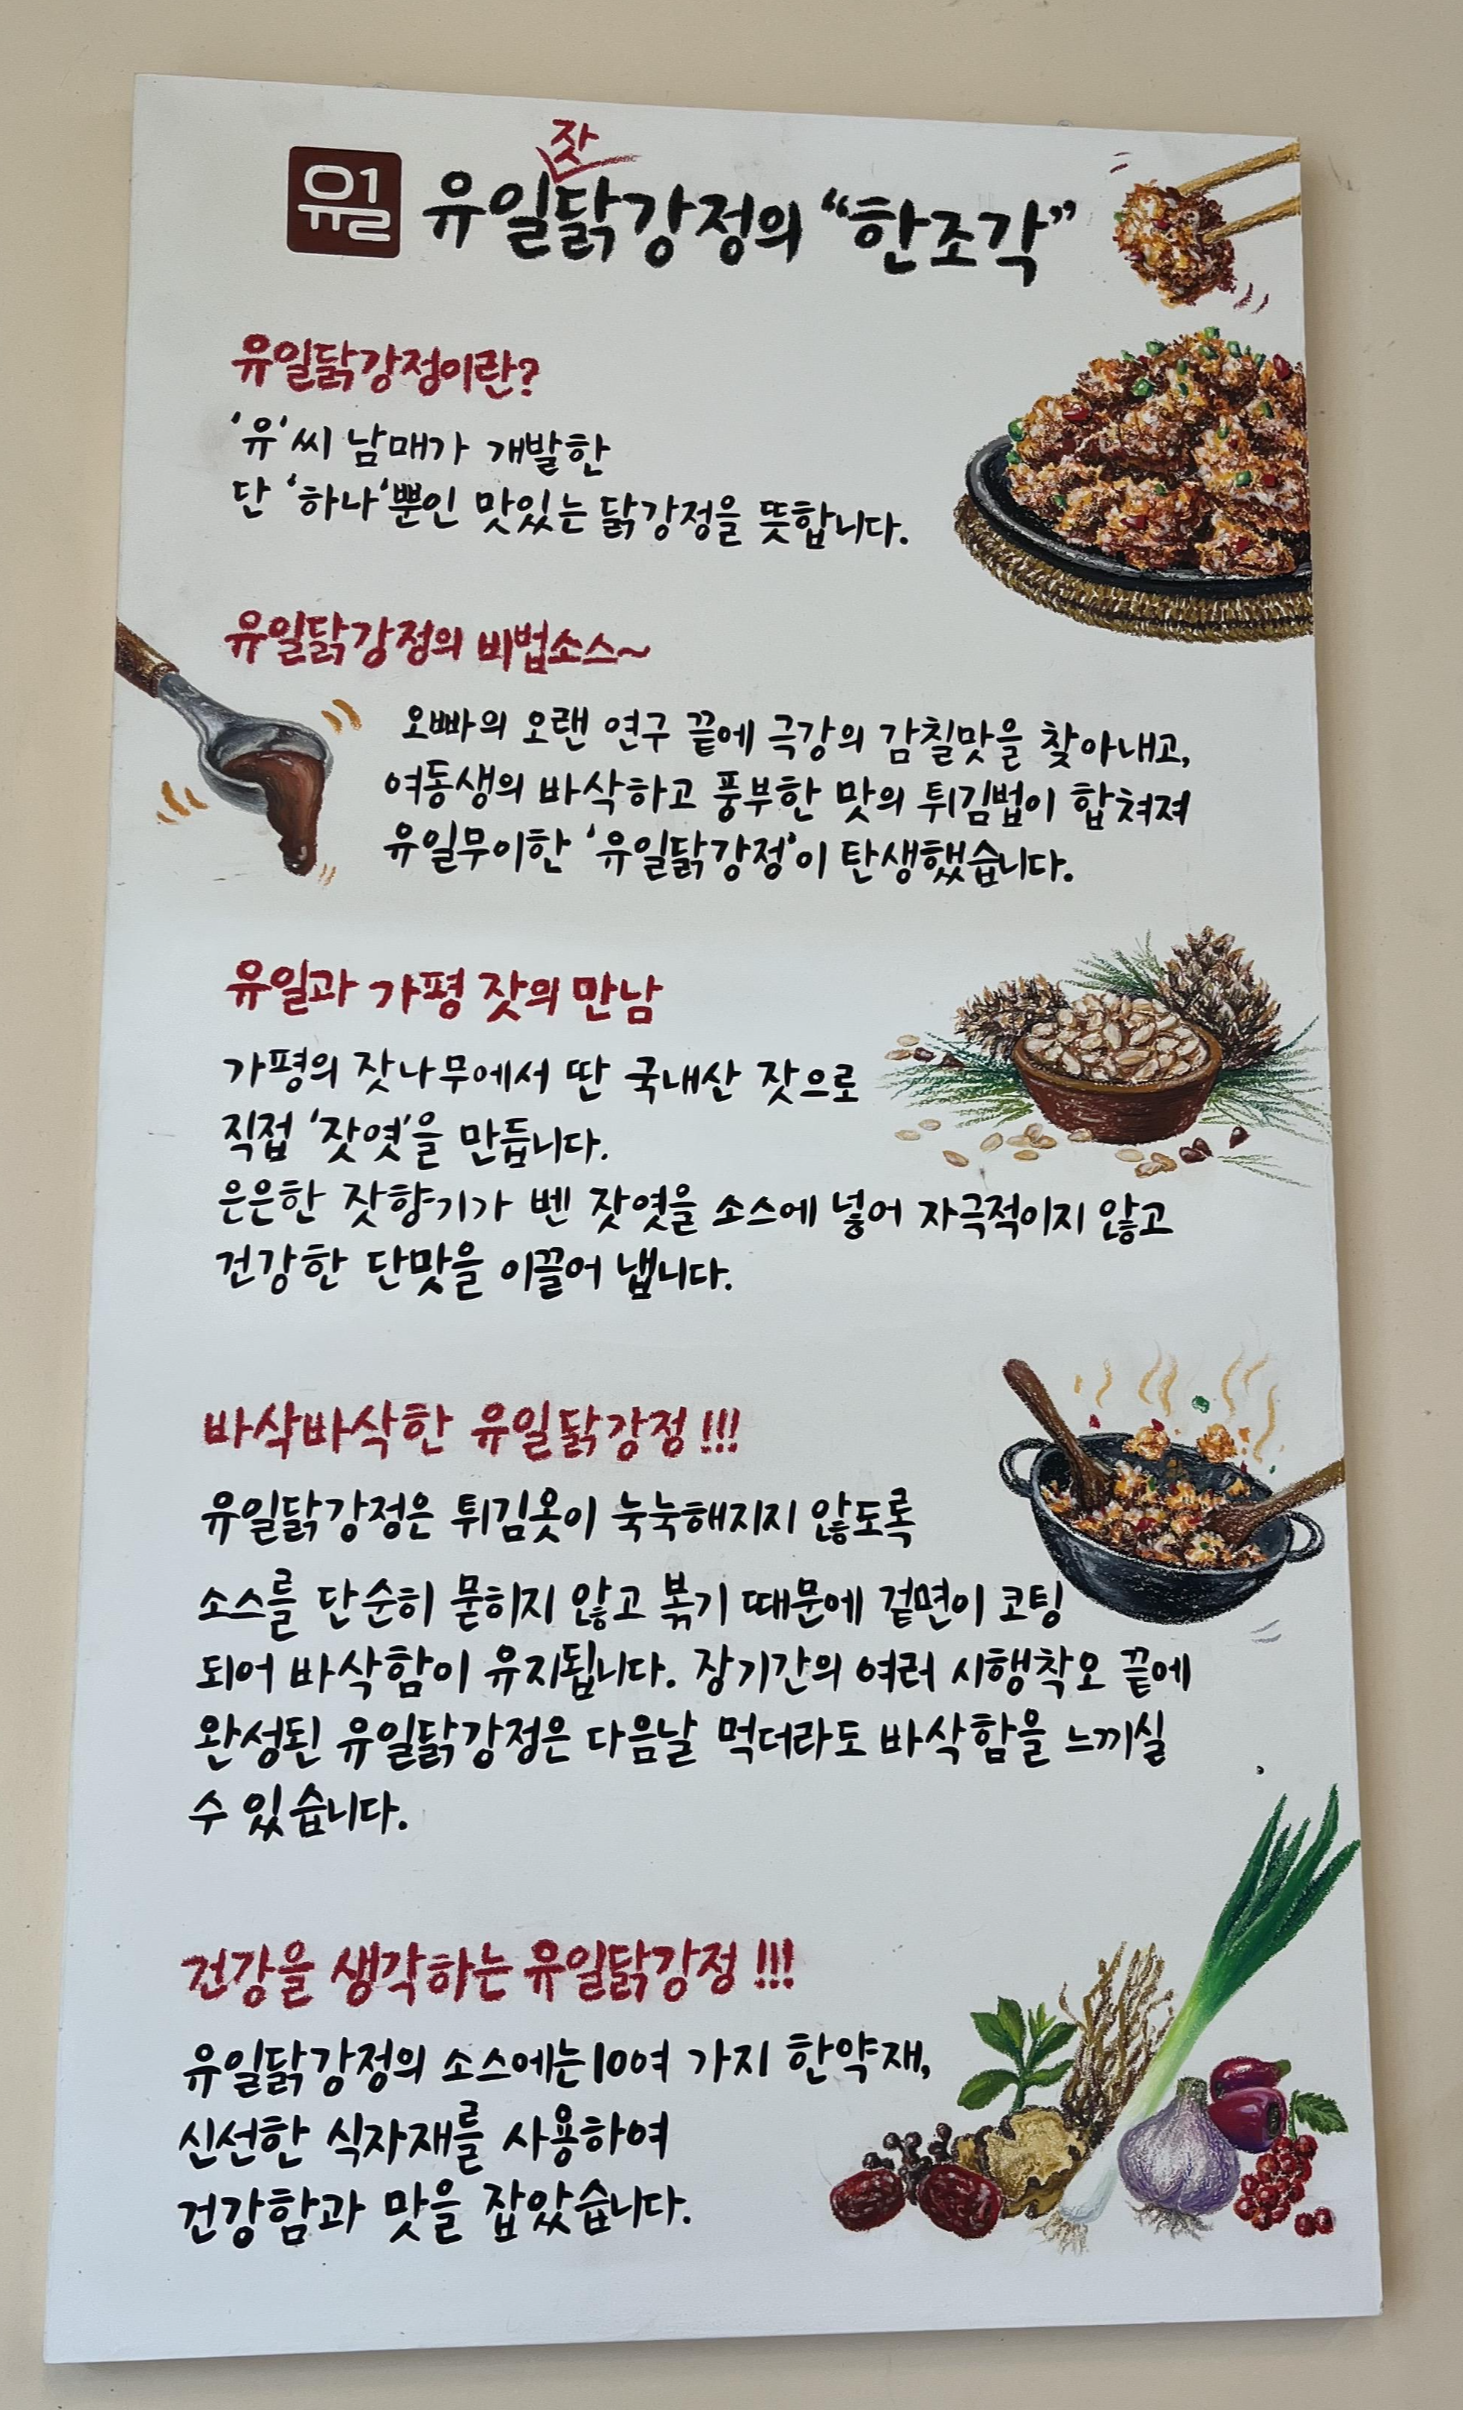 잣
유일 유일닭강정의 “한조각”
유일닭강정이란?
‘유‘씨 남매가 개발한
단 ‘하나‘뿐인 맛있는 닭강정을 뜻합니다.
유일닭강정의 비법소스~
오빠의 오랜 연구 끝에 극강의 감칠맛을 찾아내고,
여동생의 바삭하고 풍부한 맛의 튀김법이 합쳐져
유일무이한 ‘유일닭강정’이 탄생했습니다.
유일과 가평 잣의 만남
가평의 잣나무에서 딴 국내산 잣으로
직접 ‘잣엿’을 만듭니다.
은은한 잣향기가 벤 잣엿을 소스에 넣어 자극적이지 않고
건강한 단맛을 이끌어 냅니다.
바삭바삭한 유일닭강정!!!
유일닭강정은 튀김옷이 눅눅해지지 않도록
소스를 단순히 묻히지 않고 볶기 때문에 겉면이 코팅
되어 바삭함이 유지됩니다. 장기간의 여러 시행착오 끝에
완성된 유일닭강정은 다음날 먹더라도 바삭함을 느끼실
수 있습니다.
건강을 생각하는 유일닭강정!!!
유일닭강정의 소스에는 10여 가지 한약재,
신선한 식자재를 사용하여
건강함과 맛을 잡았습니다.